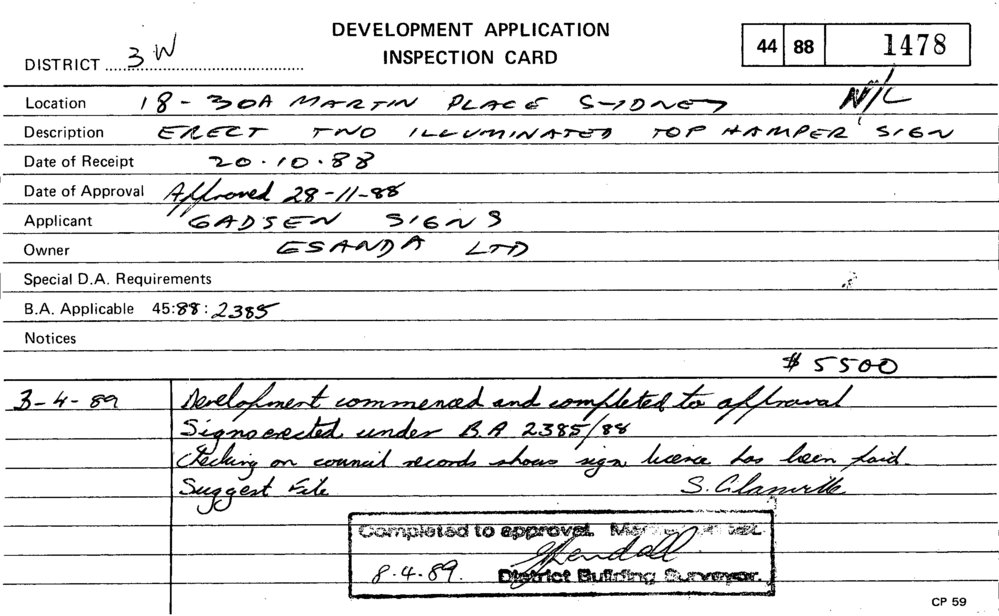 DEVELOPMENT APPLICATION
INSPECTION CARD
44 88 1478
DISTRICT 3W
N/L
Location 18-30A MARTIN PLACE SYDNEY
Description ERECT TWO ILLUMINATED TOP HAMPER SIGN
Date of Receipt 20.10.88
Date of Approval Approved 28-11-88
Applicant GADSEN SIGNS
Owner ESANDA LTD
Special D.A. Requirements
B.A. Applicable 45:88:2385
Notices
$5500
3-4-89 Development commenced and completed to approval
Signs erected under B.A 2385/88
Checking on council records shows sign licence has been paid.
Suggest File S. Glanville
Completed to approval.
8.4.89. District Building Surveyor.
CP 59